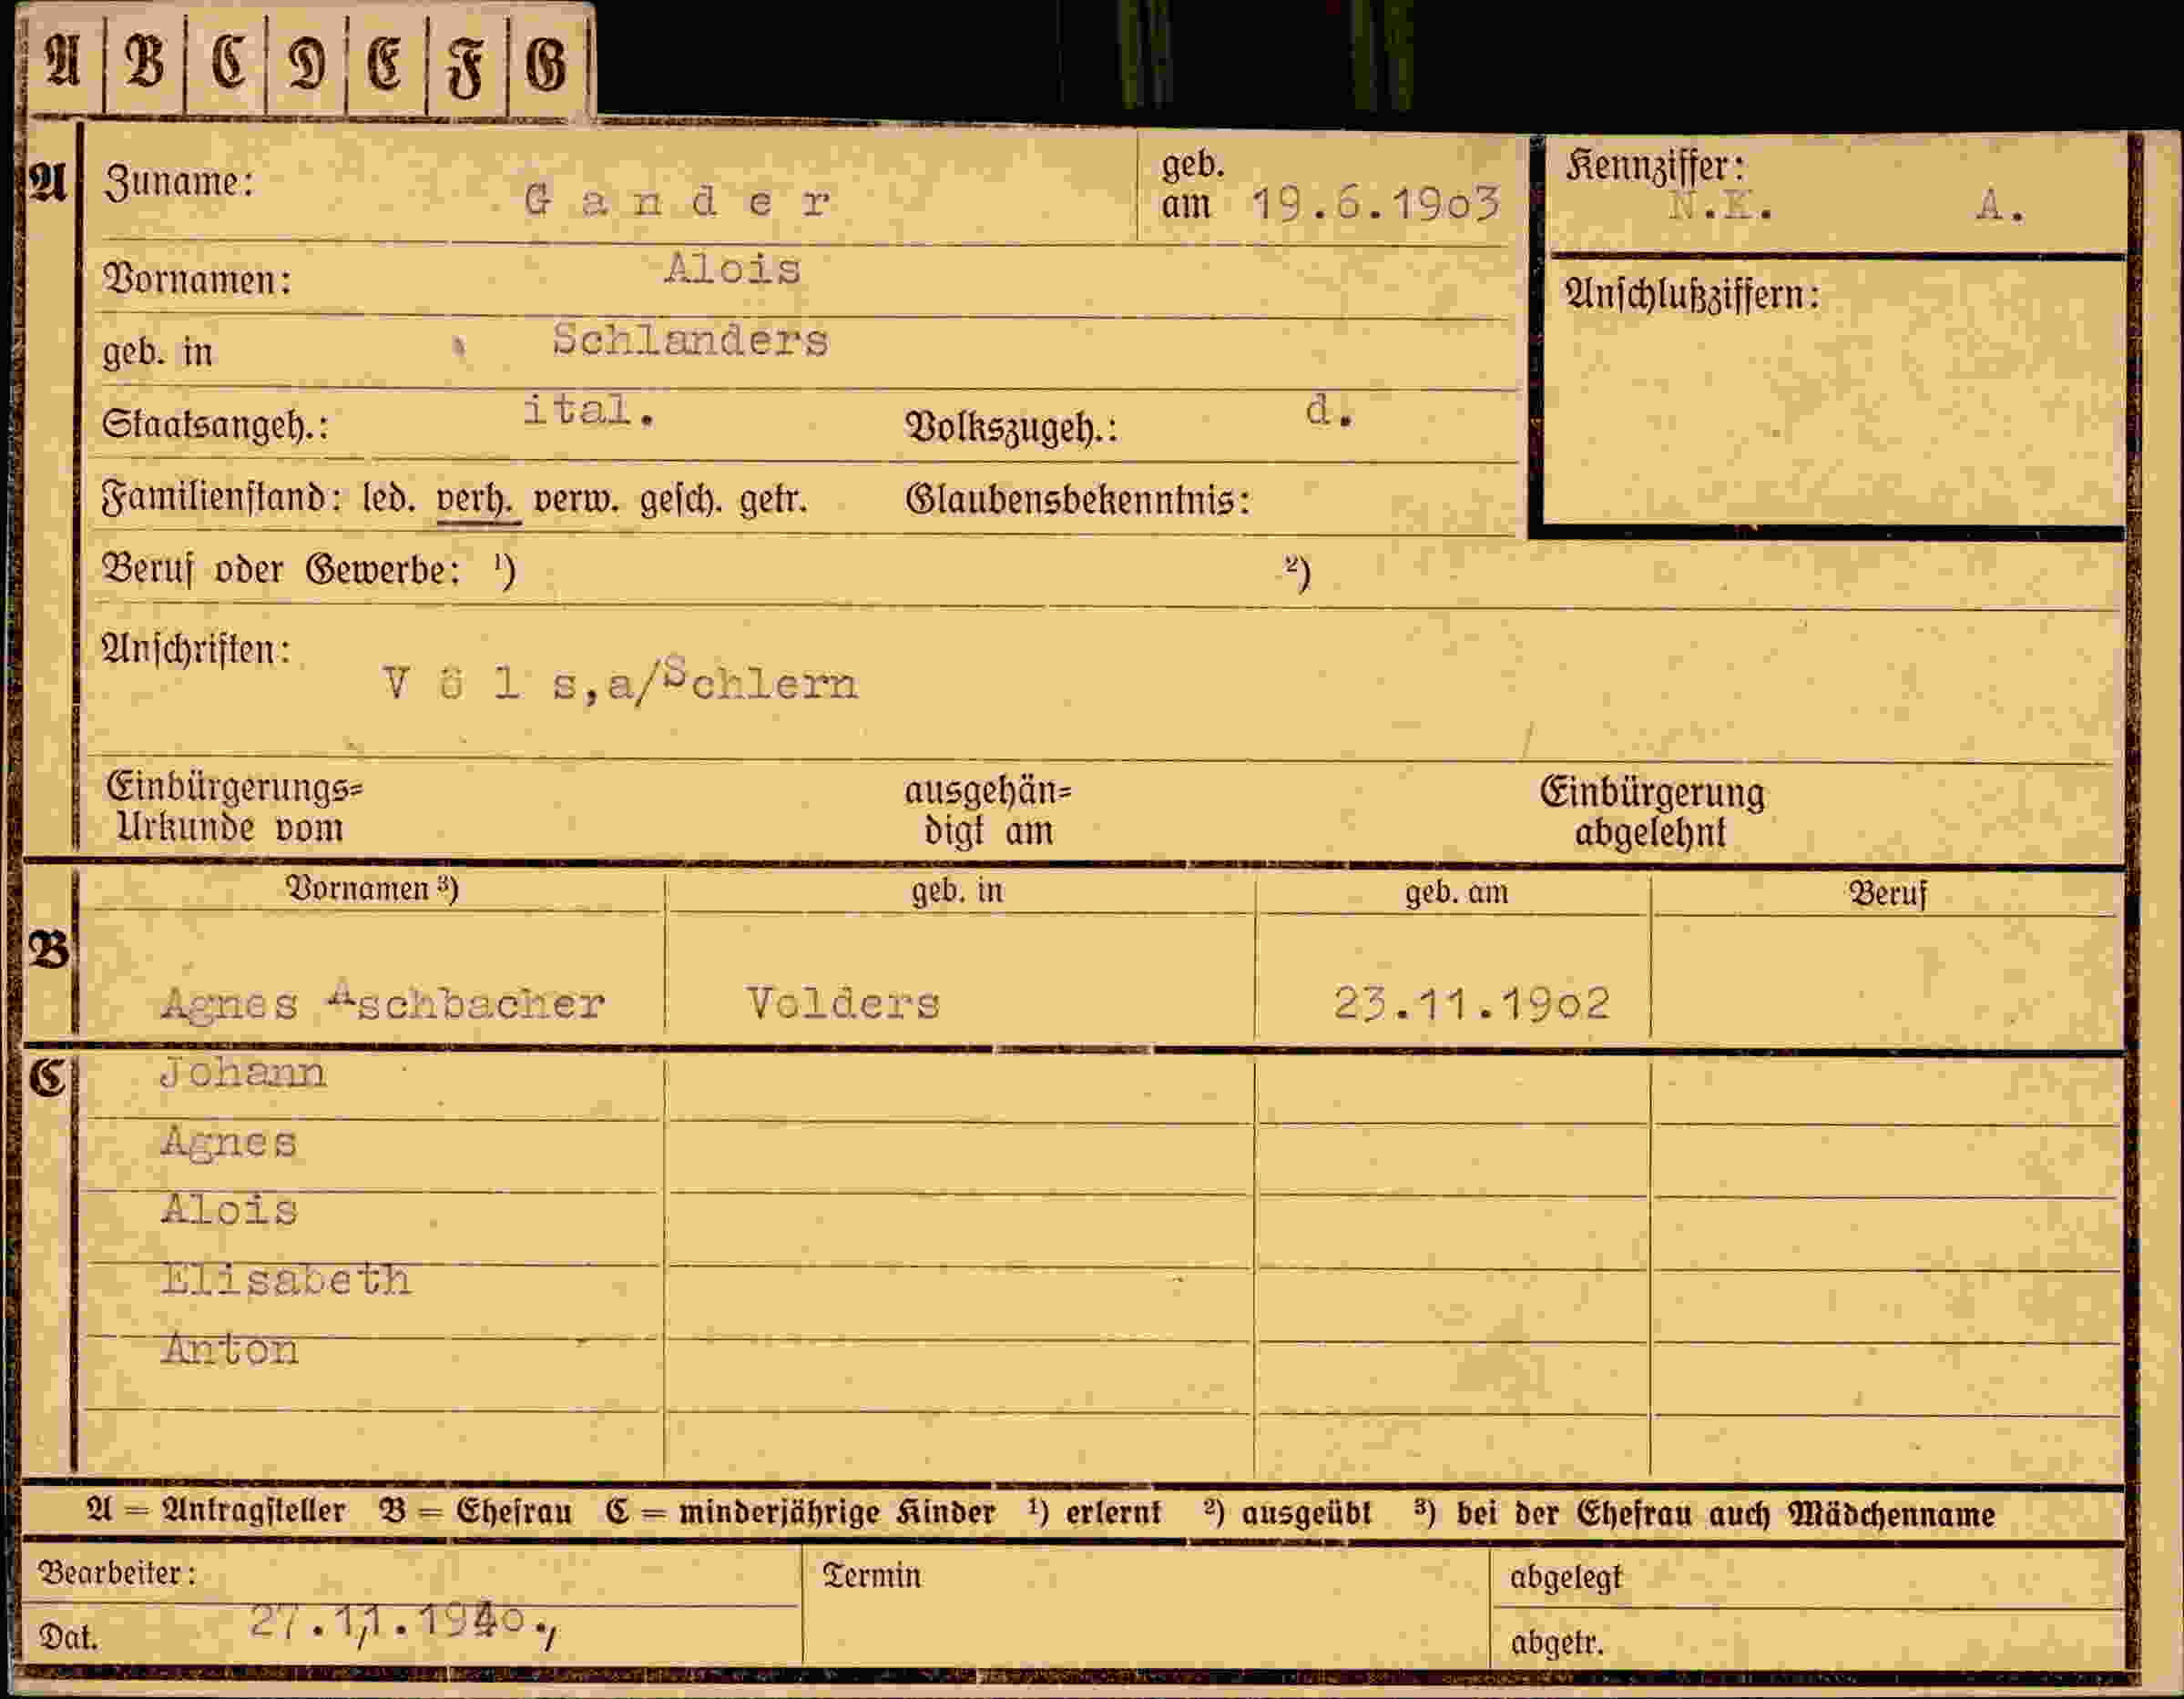 A B C D E F G
A Zuname: Gander geb. am 19.6.1903 Kennziffer: N.K. A.
Vornamen: Alois
Anschlußziffern:
geb. in Schlanders
Staatsangeh.: ital. Volkszugeh.: d.
Familienstand: led. verh. verw. gesch. getr. Glaubensbekenntnis:
Beruf oder Gewerbe: ¹) ²)
Anschriften:
Völs,a/Schlern
Einbürgerungs= ausgehän= Einbürgerung
Urkunde vom digt am abgelehnt
Vornamen ³) geb. in geb. am Beruf
B
Agnes Aschbacher Volders 23.11.1902
C Johann
Agnes
Alois
Elisabeth
Anton
A = Antragsteller B = Ehefrau C = minderjährige Kinder ¹) erlernt ²) ausgeübt ³) bei der Ehefrau auch Mädchenname
Bearbeiter: Termin abgelegt
Dat. 27.11.1940., abgetr.